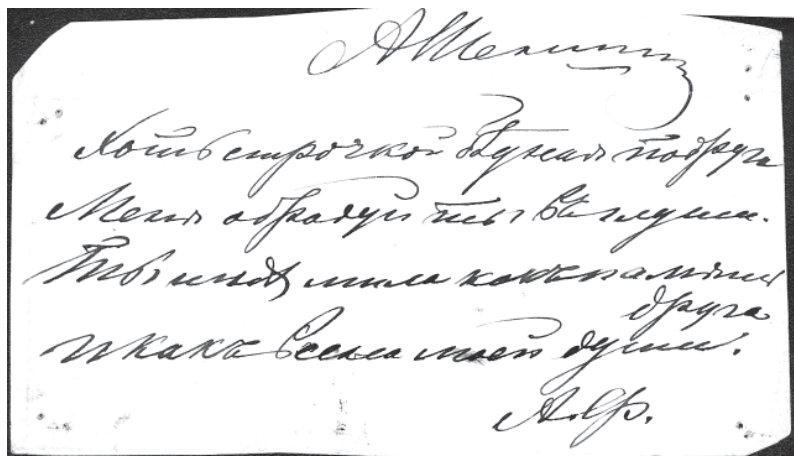 АШеншин
Хоть строчкой подруга
Меня обрадуй ты въ глуши.
Ты мнѣ мила какъ память
друга
И какъ весна моей души.
А. Ф.